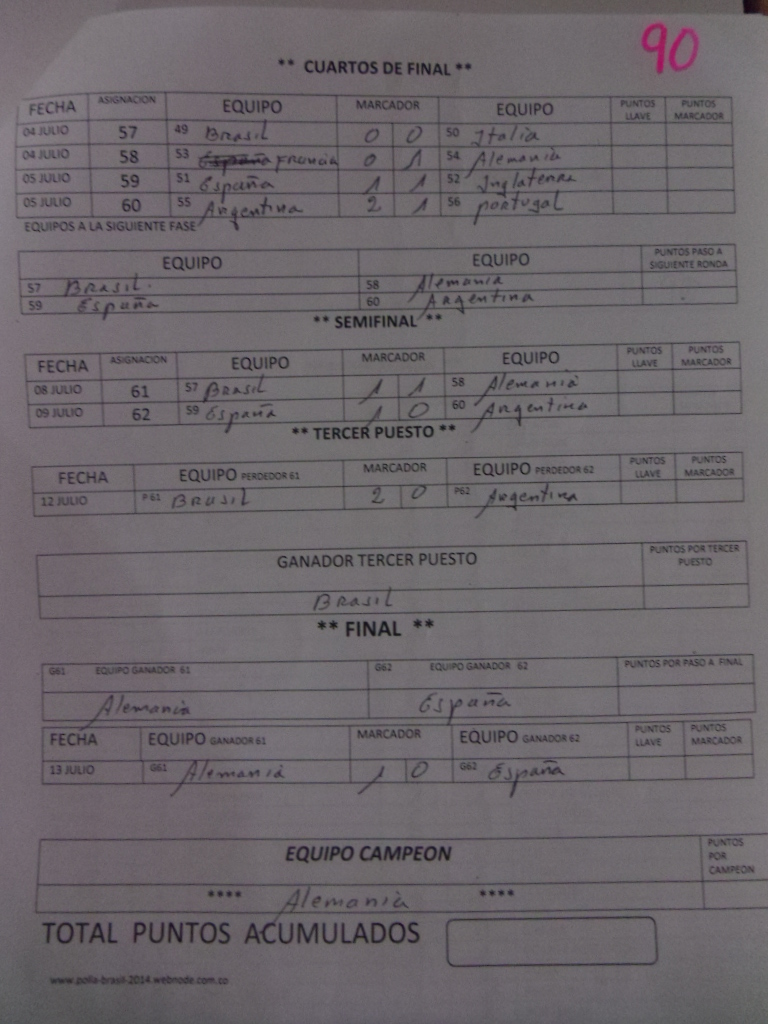 90
** CUARTOS DE FINAL **
FECHA ASIGNACION EQUIPO MARCADOR EQUIPO PUNTOS LLAVE PUNTOS MARCADOR
04 JULIO 57 49 Brasil 0 0 50 Italia
04 JULIO 58 53 España Francia 0 1 54 Alemania
05 JULIO 59 51 España 1 1 52 Inglaterra
05 JULIO 60 55 Argentina 2 1 56 Portugal
EQUIPOS A LA SIGUIENTE FASE
EQUIPO EQUIPO PUNTOS PASO A SIGUIENTE RONDA
57 Brasil. 58 Alemania
59 España 60 Argentina
** SEMIFINAL **
FECHA ASIGNACION EQUIPO MARCADOR EQUIPO PUNTOS LLAVE PUNTOS MARCADOR
08 JULIO 61 57 Brasil 1 1 58 Alemania
09 JULIO 62 59 España 1 0 60 Argentina
** TERCER PUESTO **
FECHA EQUIPO PERDEDOR 61 MARCADOR EQUIPO PERDEDOR 62 PUNTOS LLAVE PUNTOS MARCADOR
12 JULIO P61 Brasil 2 0 P62 Argentina
GANADOR TERCER PUESTO PUNTOS POR TERCER PUESTO
Brasil
** FINAL **
G61 EQUIPO GANADOR 61 G62 EQUIPO GANADOR 62 PUNTOS POR PASO A FINAL
Alemania España
FECHA EQUIPO GANADOR 61 MARCADOR EQUIPO GANADOR 62 PUNTOS LLAVE PUNTOS MARCADOR
13 JULIO G61 Alemania 1 0 G62 España
EQUIPO CAMPEON PUNTOS POR CAMPEON
**** Alemania ****
TOTAL PUNTOS ACUMULADOS
www.polla-brasil-2014.webnode.com.co